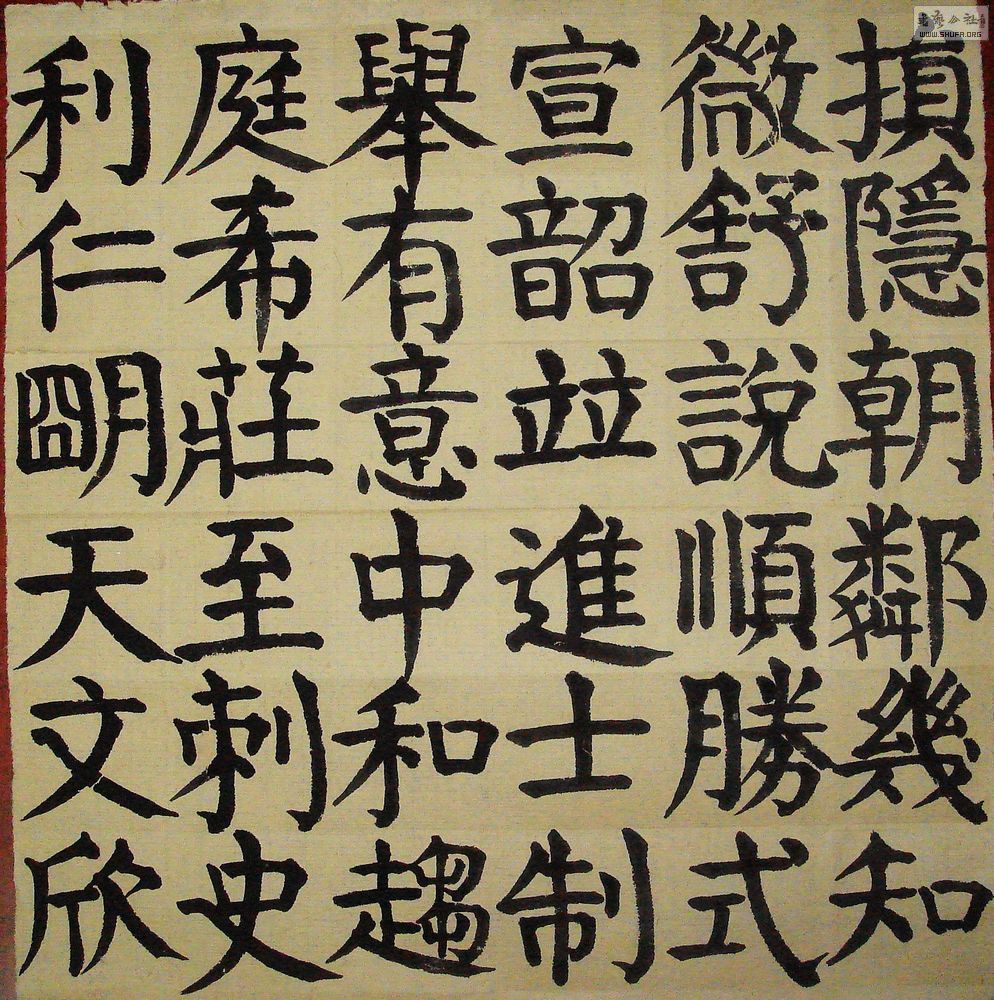 損隱朝鄰幾知
微舒說順勝式
宣韶竝進士制
舉有意中和趨
庭希莊至刺史
利仁明天文欣
WWW.SHUFA.ORG